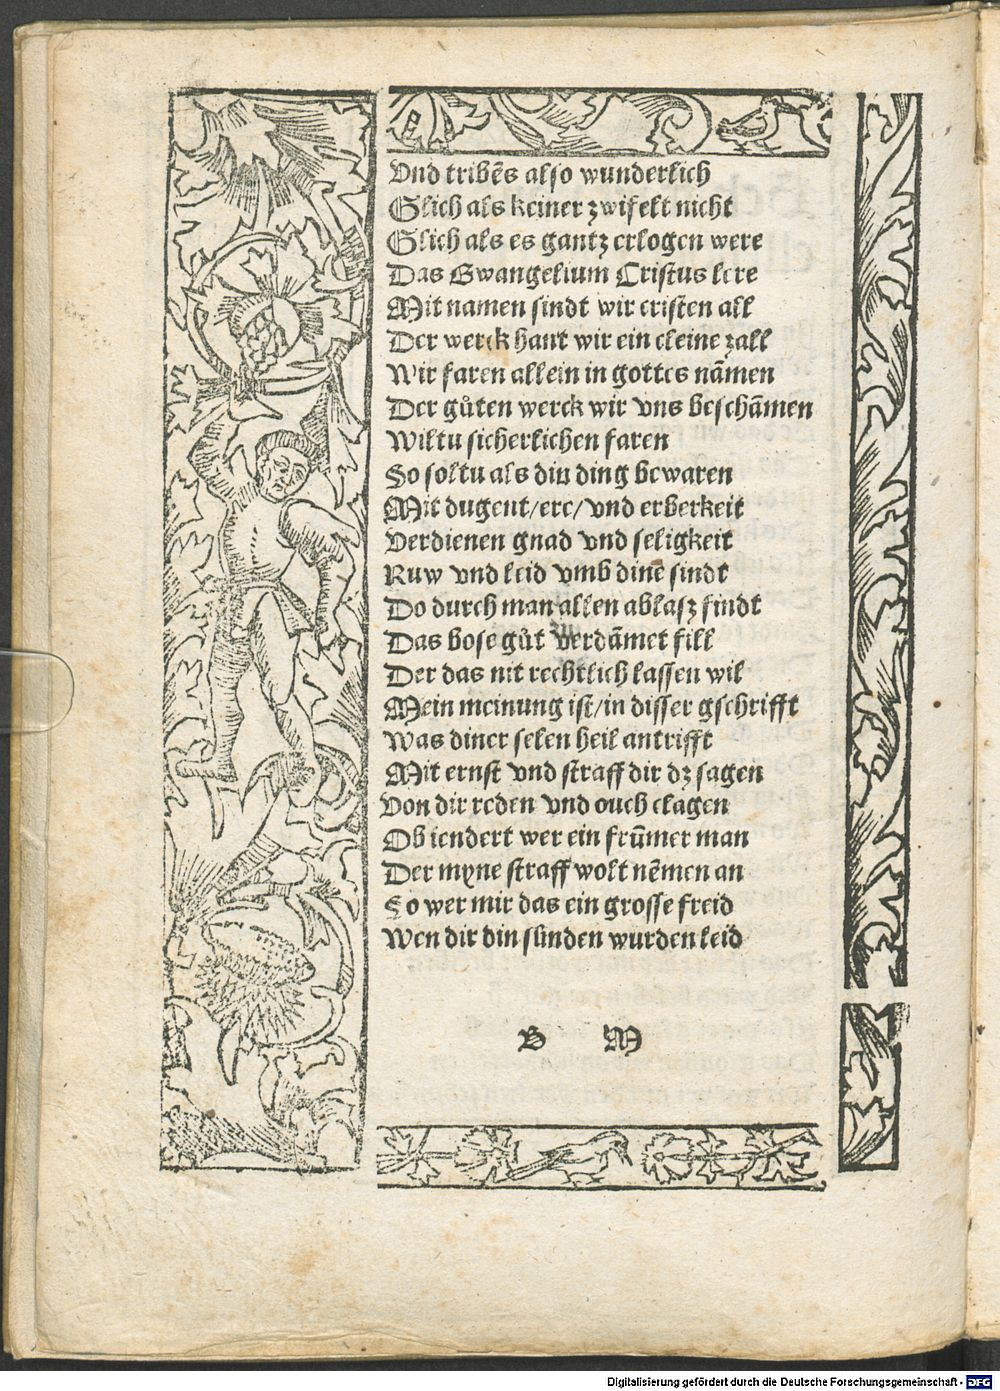 Vnd tribēs also wunderlich
Glich als keiner zwifelt nicht
Glich als es gantz erlogen were
Das Ewangelium Cristus lere
Mit namen sindt wir cristen all
Der werck hant wir ein cleine zall
Wir faren allein in gottes nāmen
Der gůten werck wir vns beschāmen
Wiltu sicherlichen faren
So soltu als din ding bewaren
Mit dugent/ere/vnd erberkeit
Verdienen gnad vnd seligkeit
Ruw vnd leid vmb dinē sindt
Do durch man allen ablasz findt
Das bose gůt verdāmet fill
Der das nit rechtlich lassen wil
Mein meinung ist/in disser gschrifft
Was diner selen heil antrifft
Mit ernst vnd straff dir dz sagen
Von dir reden vnd ouch clagen
Ob iendert wer ein frūmer man
Der myne straff wolt nēmen an
So wer mir das ein grosse freid
Wen dir din sunden wurden leid
B M
Digitalisierung gefördert durch die Deutsche Forschungsgemeinschaft - DFG